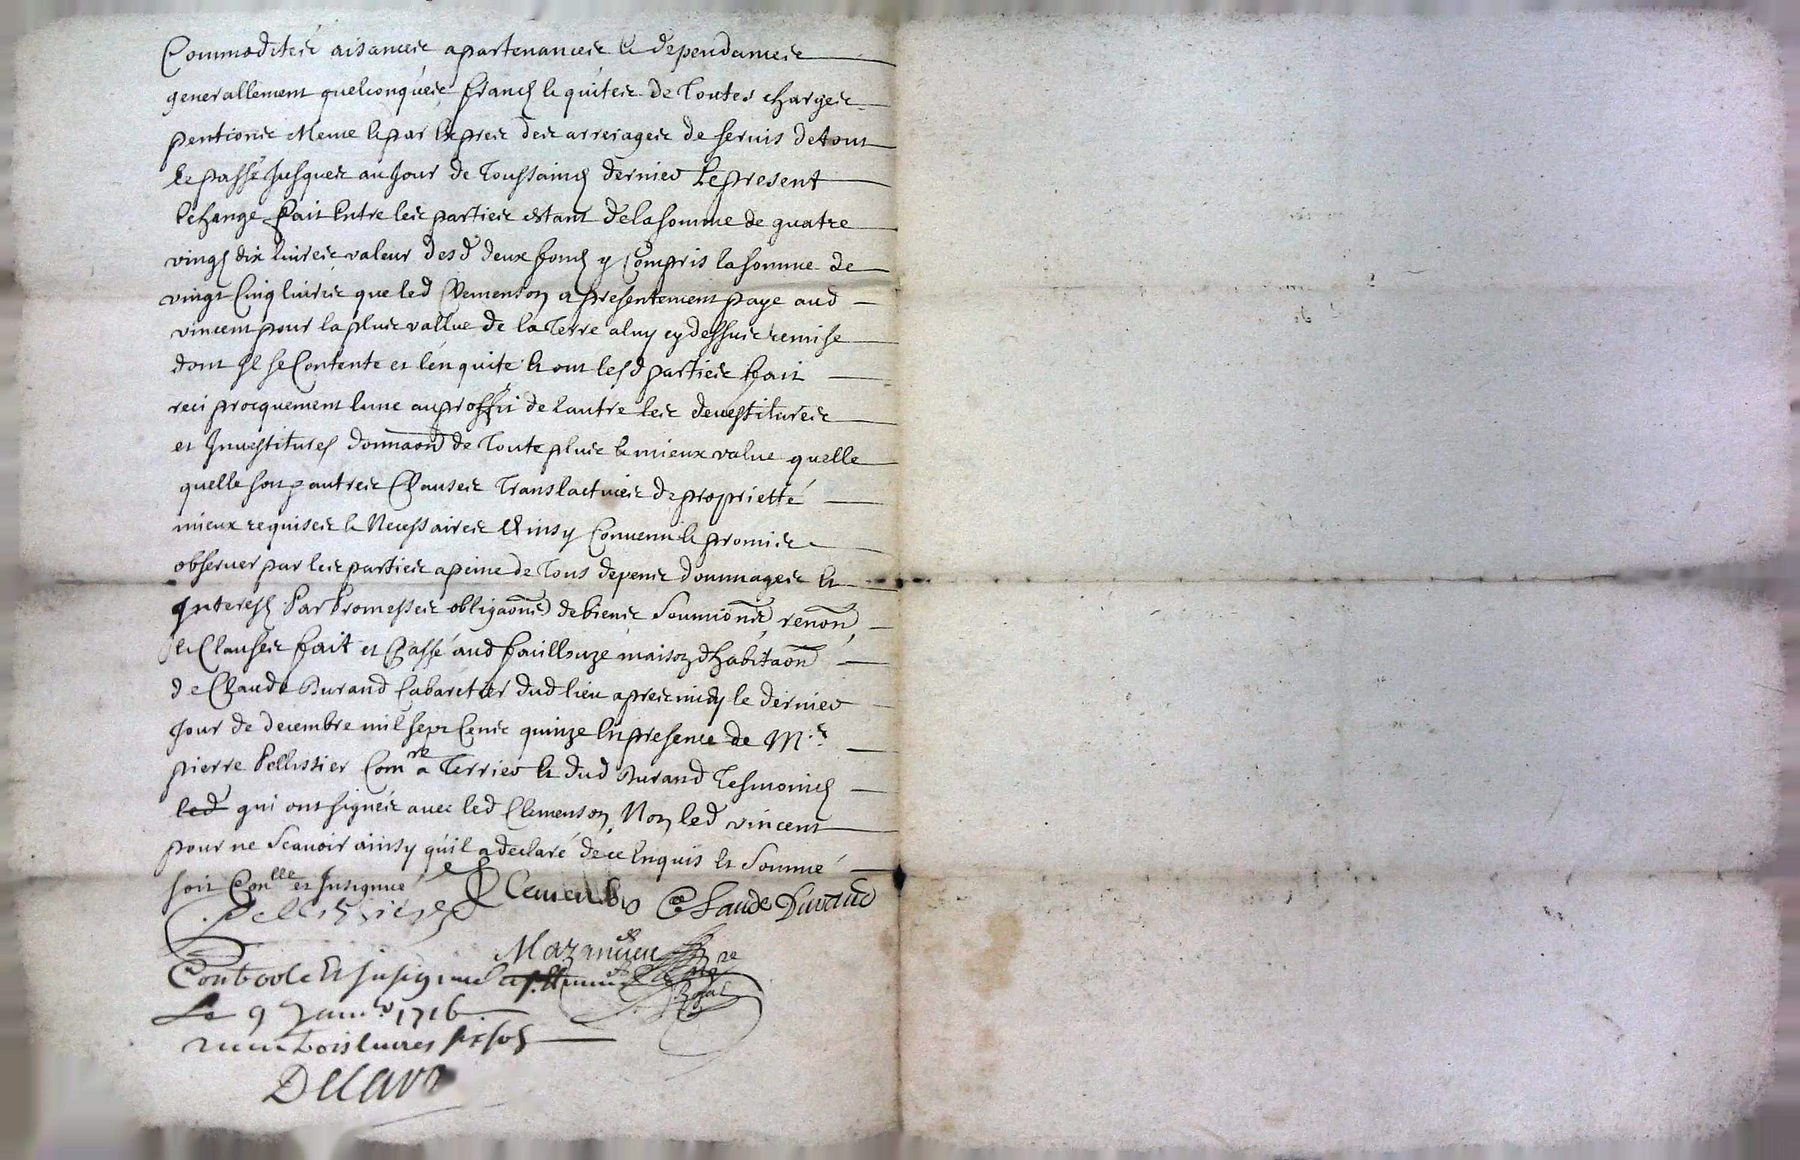 Commoditeis aisanceis apartenanceis & dependanceis
generallement quelconqueis franch & quiteis de Toutes chargeis
pentionis Meme & par expreis deis arreirageis de servis de tout
le passé Jusqueis au Jour de Toussainch dernier Le present
echange fait Entre leis partieis estant de la somme de quatre
vingt dix livreis valeur desd deux fonds y Compris la somme de
vingt Cinq livreis que led Clemenson a presentement paye aud
vincent pour la pluis vallue de la Terre a luy cy dessuis remise
dont Il se Contente et l'en quite Et ont lesd partieis fait
reciprocquement lune au proffit de lautre leis devestitureis
et Investitures donnaon de Toute pluis & mieux value quelle
quelle soit autreis Clauseis Translactiveis de proprietté
mieux requiseis & Necessaireis Ainsy Convenu & promis
observer par leis partieis a peine de Tous depenis dommageis Et
Interests Par Promesseis obligaonis de bienis Soumionis, renon,
& Clauseis fait et Passé aud faillouze maison dhabitaon
de Claude Durand Cabaretier dud lieu apreis midy le dernier
Jour de decembre mil sept Cenis quinze En presence de Mre
pierre Pellissier Comre a Terrier Et dud Durand Tesmoings
led qui ont signeis avec led Clemenson, Non led vincent
pour ne Scavoir ainsy qu'il a declaré de ce Enquis Et Sommé
soit Conllé et Insignué
Pellissier Clemenson Claude Durand
Controle Et Insignué
Le 9 Janvr 1716
trois livres six sols